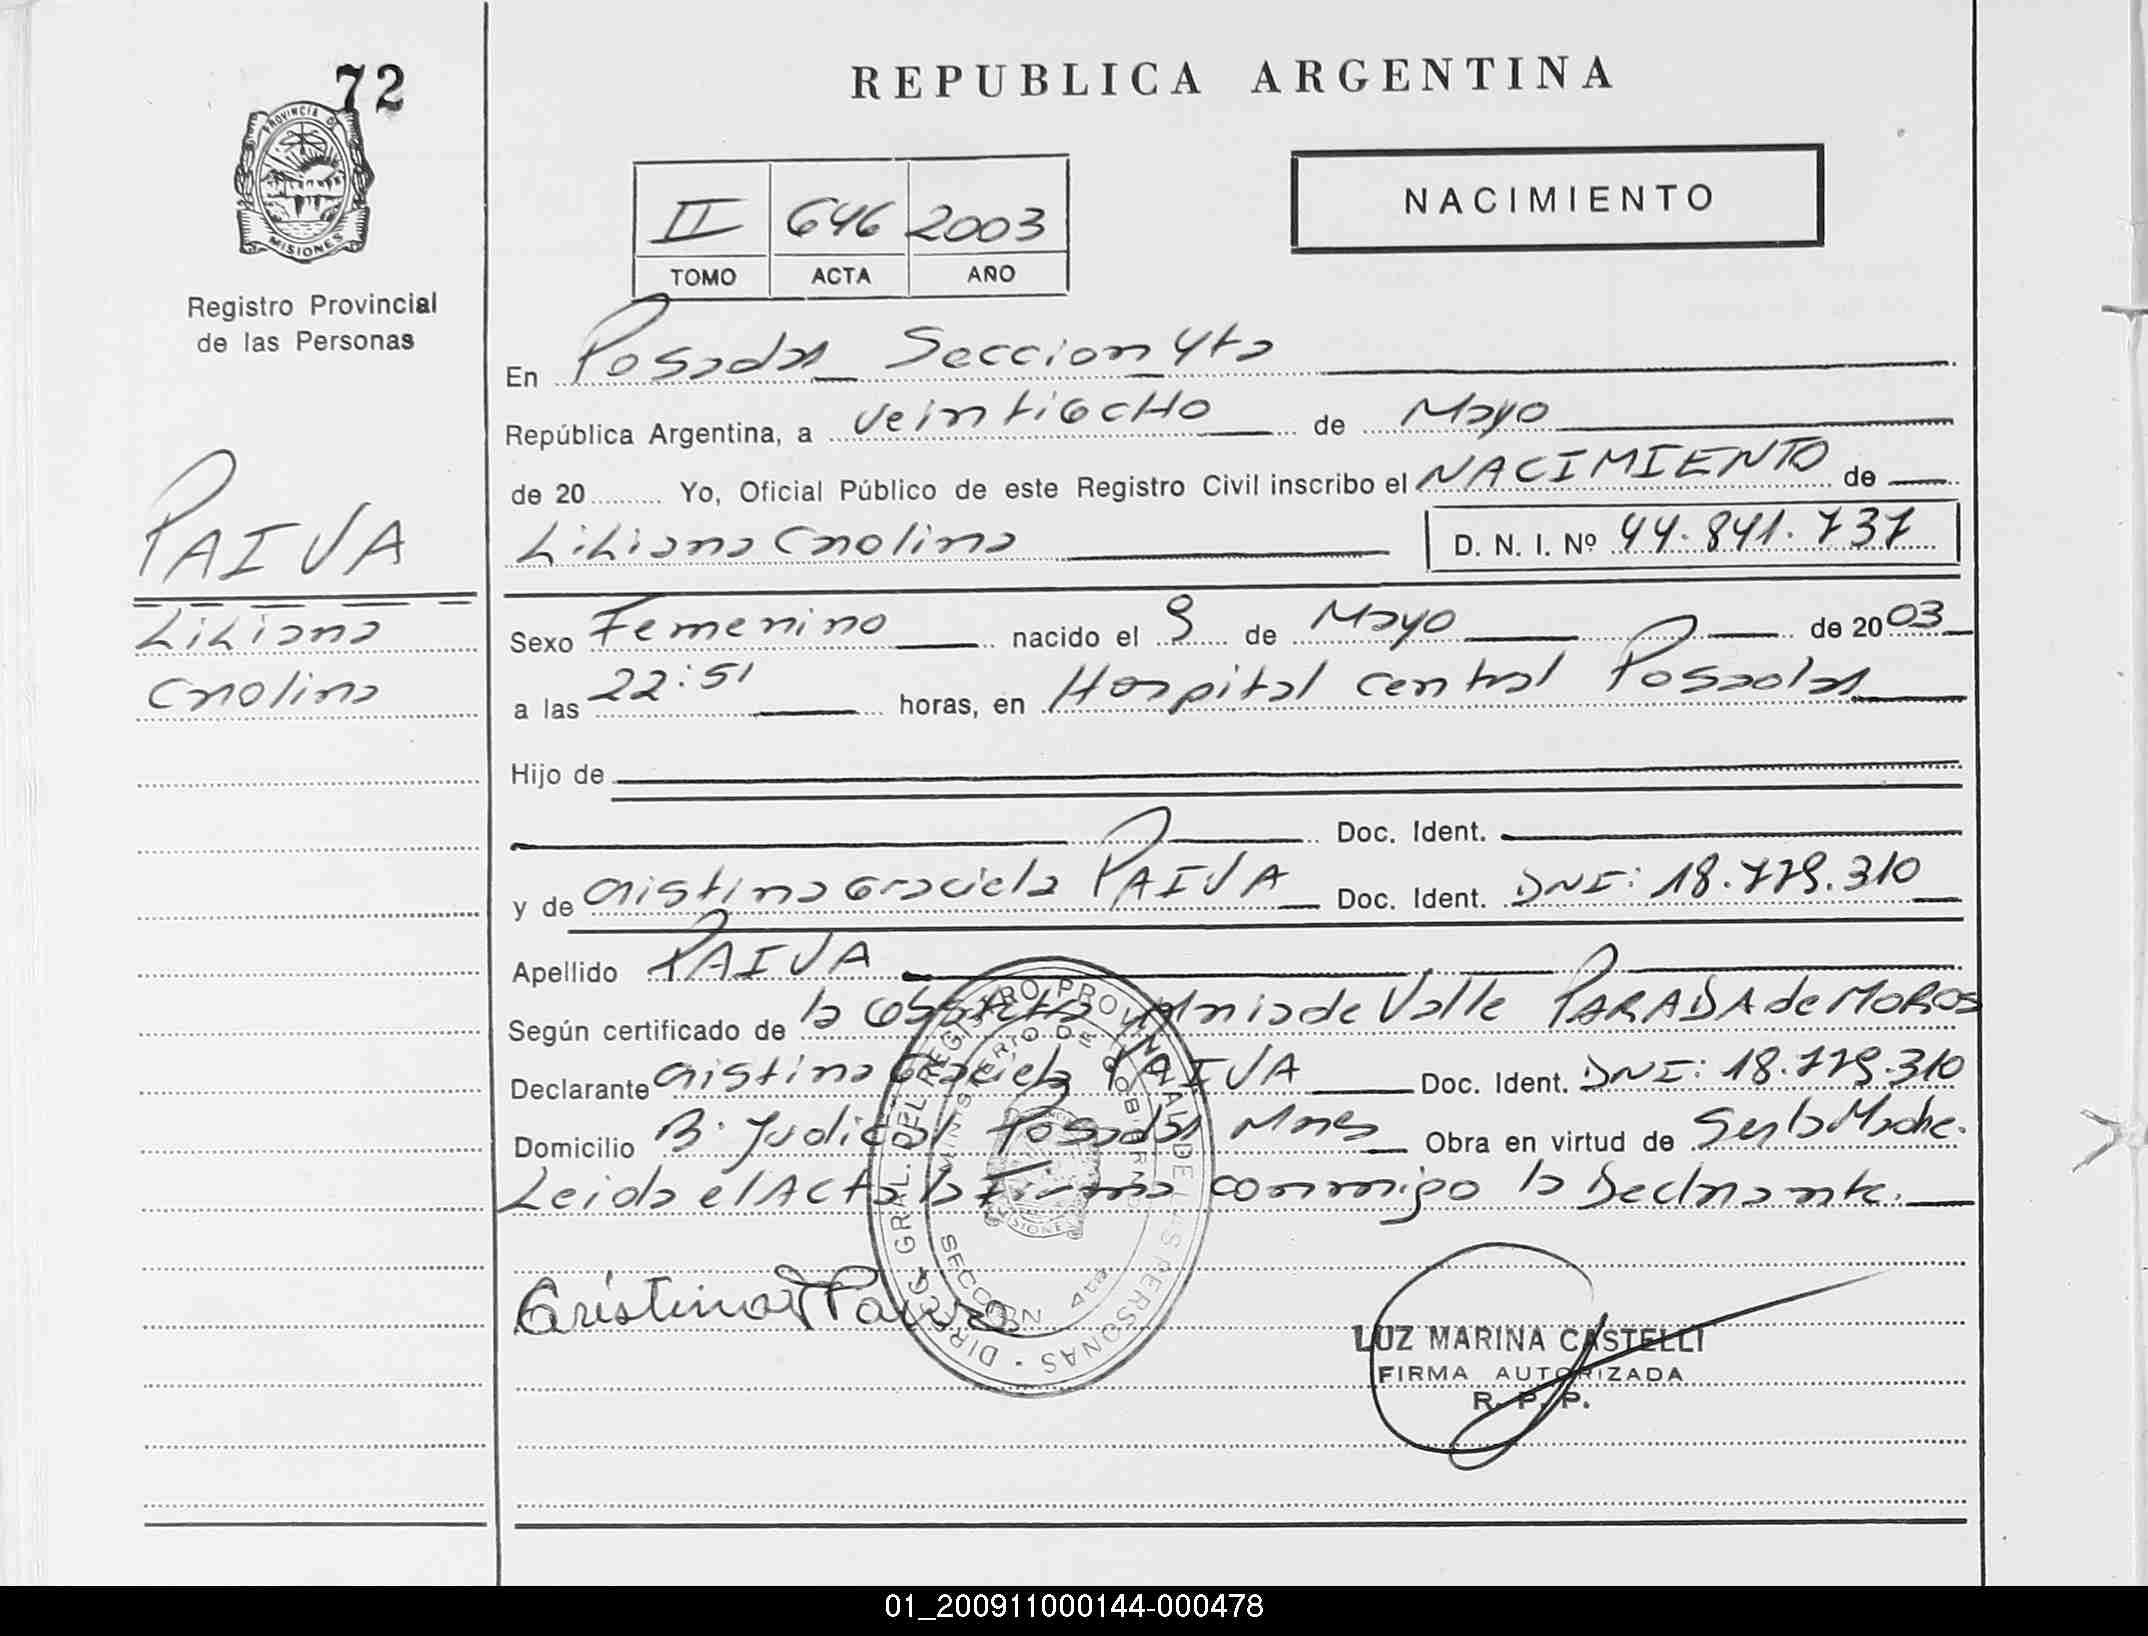 72
PROVINCIA D
MISIONES
Registro Provincial
de las Personas
REPUBLICA ARGENTINA
II 646 2003
TOMO ACTA AÑO
NACIMIENTO
En Posadas Seccion 4ta
República Argentina, a veintiocho de Mayo
de 20......... Yo, Oficial Público de este Registro Civil inscribo el NACIMIENTO de
Liliana Carolina D. N. I. Nº 44.841.737
PAIVA
Liliana
Carolina
Sexo Femenino nacido el 9 de Mayo de 2003
a las 22:51 horas, en Hospital central Posadas
Hijo de
Doc. Ident.
y de Cristina Graciela PAIVA Doc. Ident. DNI: 18.779.310
Apellido PAIVA
Según certificado de la Obstetra Maria de Valle PARADA de MOROS
Declarante Cristina Graciela PAIVA Doc. Ident. DNI: 18.779.310
Domicilio B. Judicial Posadas Mnes Obra en virtud de Ser la Madre.
Leida el Acta la Firma conmigo la Declarante.
DIRECC. GRAL. DEL REGISTRO PROVINCIAL DE LAS PERSONAS
MINISTERIO DE GOBIERNO
MISIONES
SECCION 4ta
Cristina Paiva
LUZ MARINA CASTELLI
FIRMA AUTORIZADA
R. P. P.
01_200911000144-000478